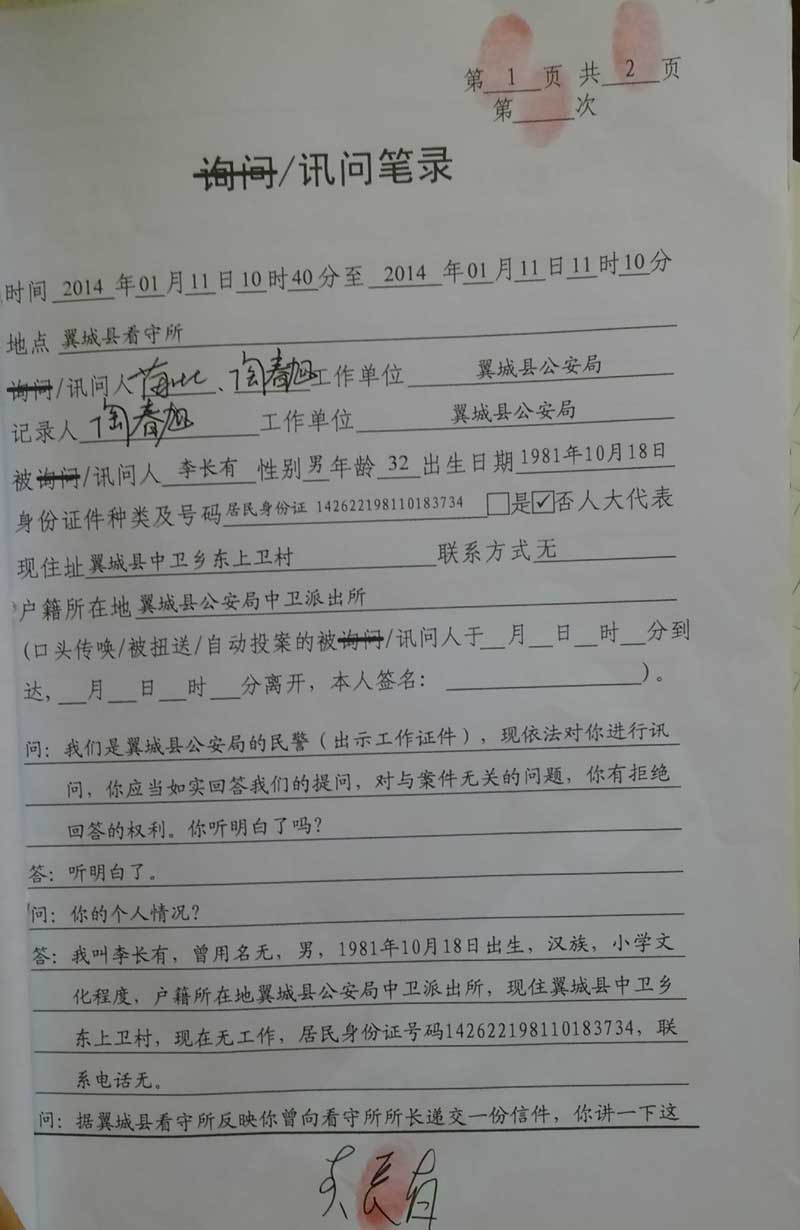 第 1 页 共 2 页
第____次
询问/讯问笔录
时间 2014 年 01 月 11 日 10 时 40 分至 2014 年 01 月 11 日 11 时 10 分
地点 翼城县看守所
询问/讯问人 、陶春旭 工作单位 翼城县公安局
记录人 陶春旭 工作单位 翼城县公安局
被询问/讯问人 李长有 性别 男 年龄 32 出生日期 1981年10月18日
身份证件种类及号码 居民身份证 142622198110183734 □是☑否人大代表
现住址 翼城县中卫乡东上卫村 联系方式 无
户籍所在地 翼城县公安局中卫派出所
(口头传唤/被扭送/自动投案的被询问/讯问人于__月__日__时__分到
达,__月__日__时__分离开,本人签名:________)。
问:我们是翼城县公安局的民警(出示工作证件),现依法对你进行讯
问,你应当如实回答我们的提问,对与案件无关的问题,你有拒绝
回答的权利。你听明白了吗?
答:听明白了。
问:你的个人情况?
答:我叫李长有,曾用名无,男,1981年10月18日出生,汉族,小学文
化程度,户籍所在地翼城县公安局中卫派出所,现住翼城县中卫乡
东上卫村,现在无工作,居民身份证号码142622198110183734,联
系电话无。
问:据翼城县看守所反映你曾向看守所所长递交一份信件,你讲一下这
李长有